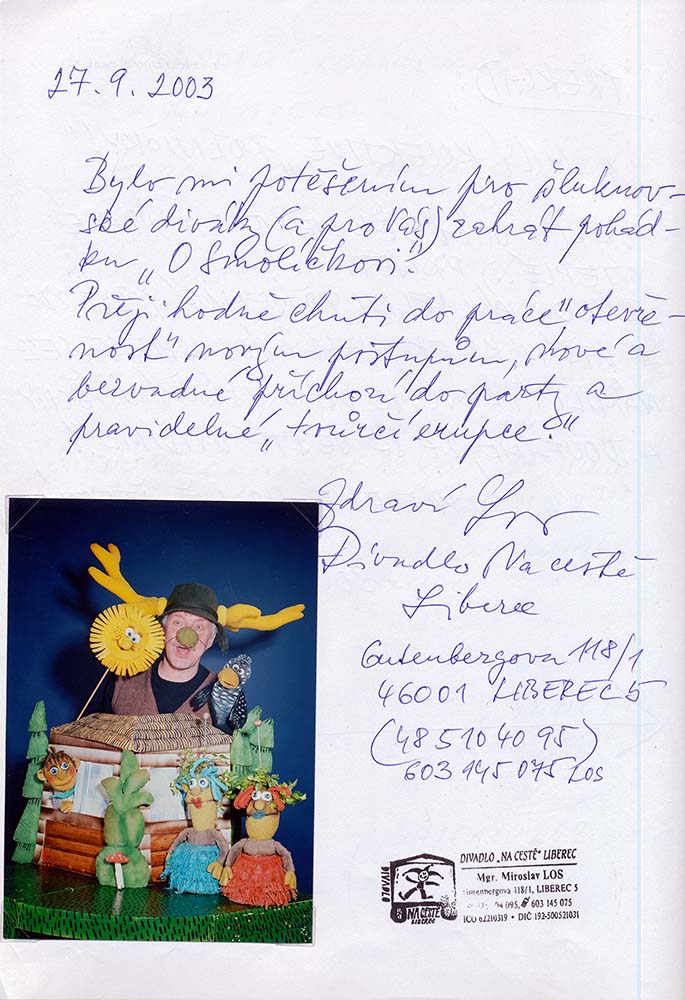 27.9.2003
Bylo mi potěšením pro šluknov-
ské diváky (a pro Vás) zahrát pohád-
ku „O Smolíčkovi".
Přeji hodně chuti do práce" otevře-
nost" novým postupům, nové a
bezvadné příchozí do party a
pravidelné „tvůrčí erupce."
Zdraví
Divadlo Na cestě
Liberec
Gutenbergova 118/1
46001 LIBEREC 5
(48 510 40 95)
603 145 075 Los
DIVADLO „NA CESTĚ" LIBEREC
Mgr. Miroslav LOS
Gutenbergova 118/1, LIBEREC 5
095, 603 145 075
IČO 62210319 • DIČ 192-500521031
DIVADLO
NA CESTĚ
LIBEREC